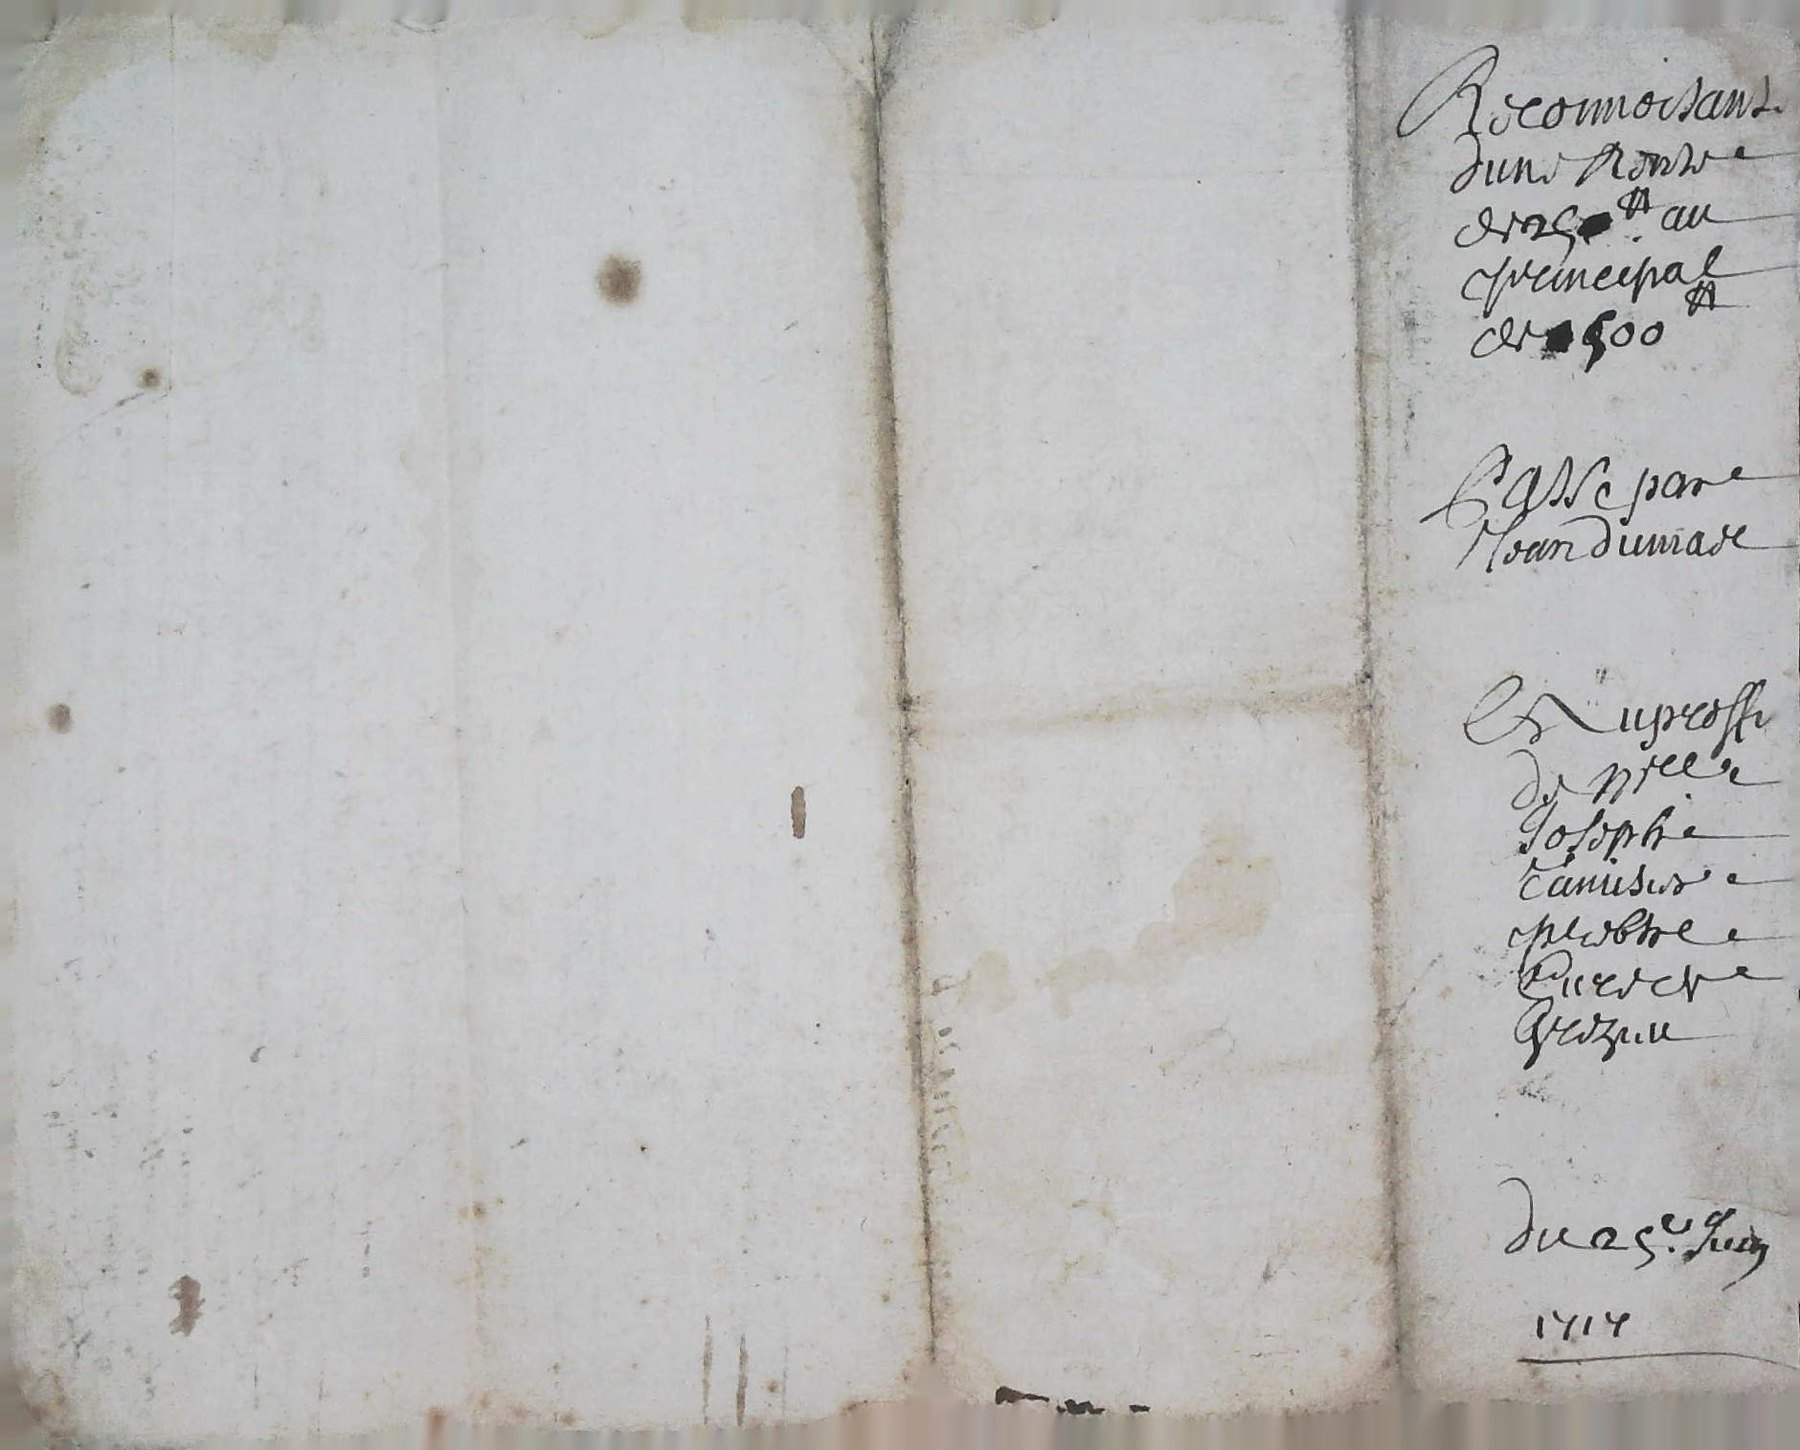 Reconnoisans.
dune Rente
de 25 ₶ au
principal
de 500 ₶
Passe par
Jean dumas
Au proffi
de Mre
Joseph
Tanisier
prebtre
Cure de
Grezieu
du 25e Juin
1717